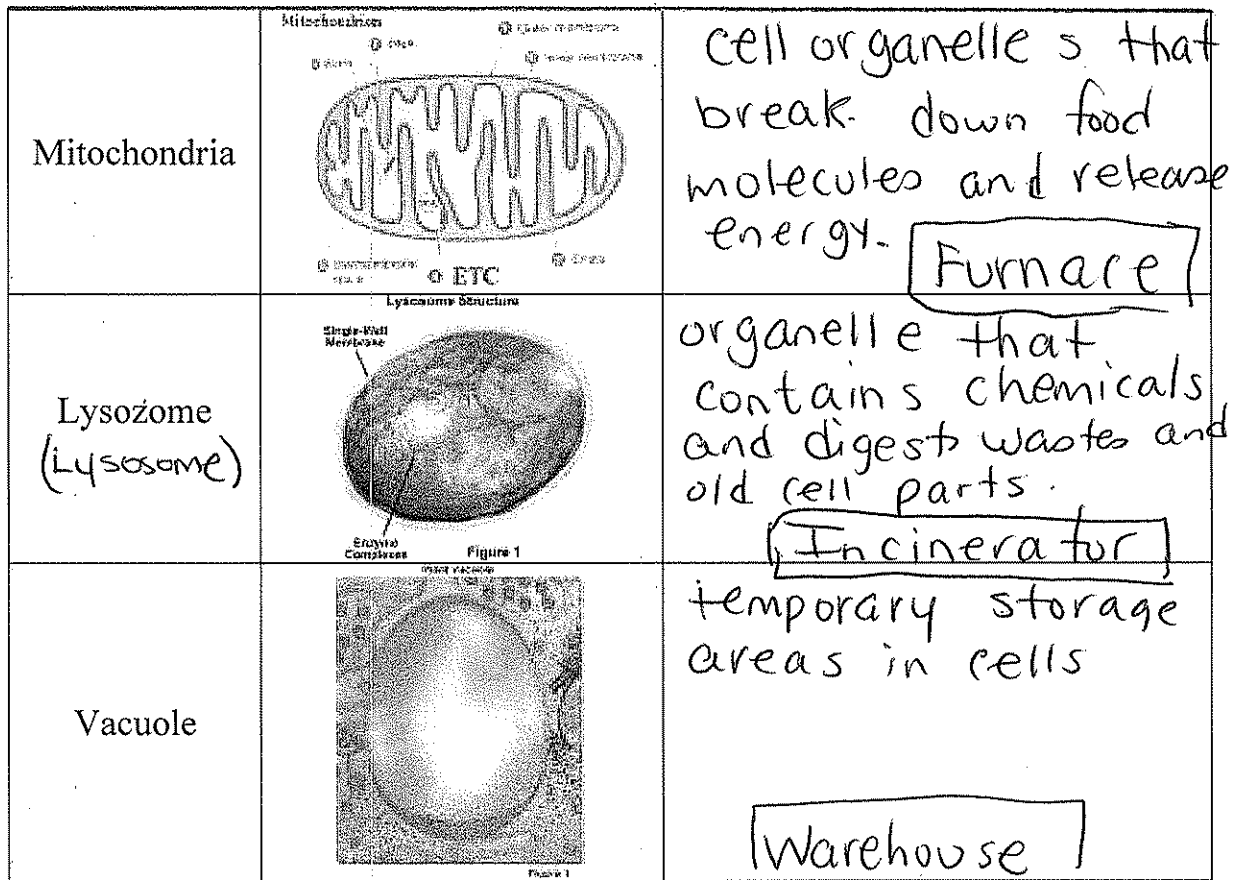 Mitochondria
Mitochondrion
ETC
cell organelle s that
break down food
molecules and release
energy.
Furnace
Lysozome
(Lysosome)
Lysosome Structure
Single-Wall
Membrane
Enzyme
Complexes
Figure 1
organelle that
contains chemicals
and digests wastes and
old cell parts.
Incinerator
Vacuole
Plant Vacuole
Figure 1
temporary storage
areas in cells
Warehouse